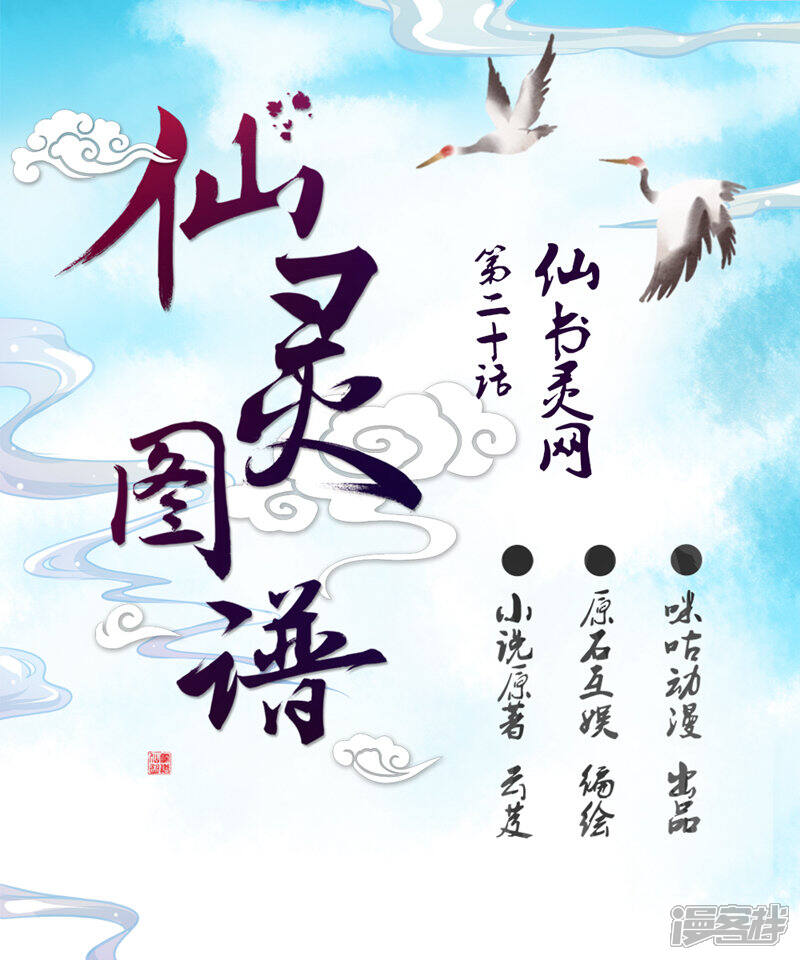 仙灵图谱
第二十话
仙书灵网
咪咕动漫 出品
原石互娱 编绘
小说原著 云芨
漫客栈